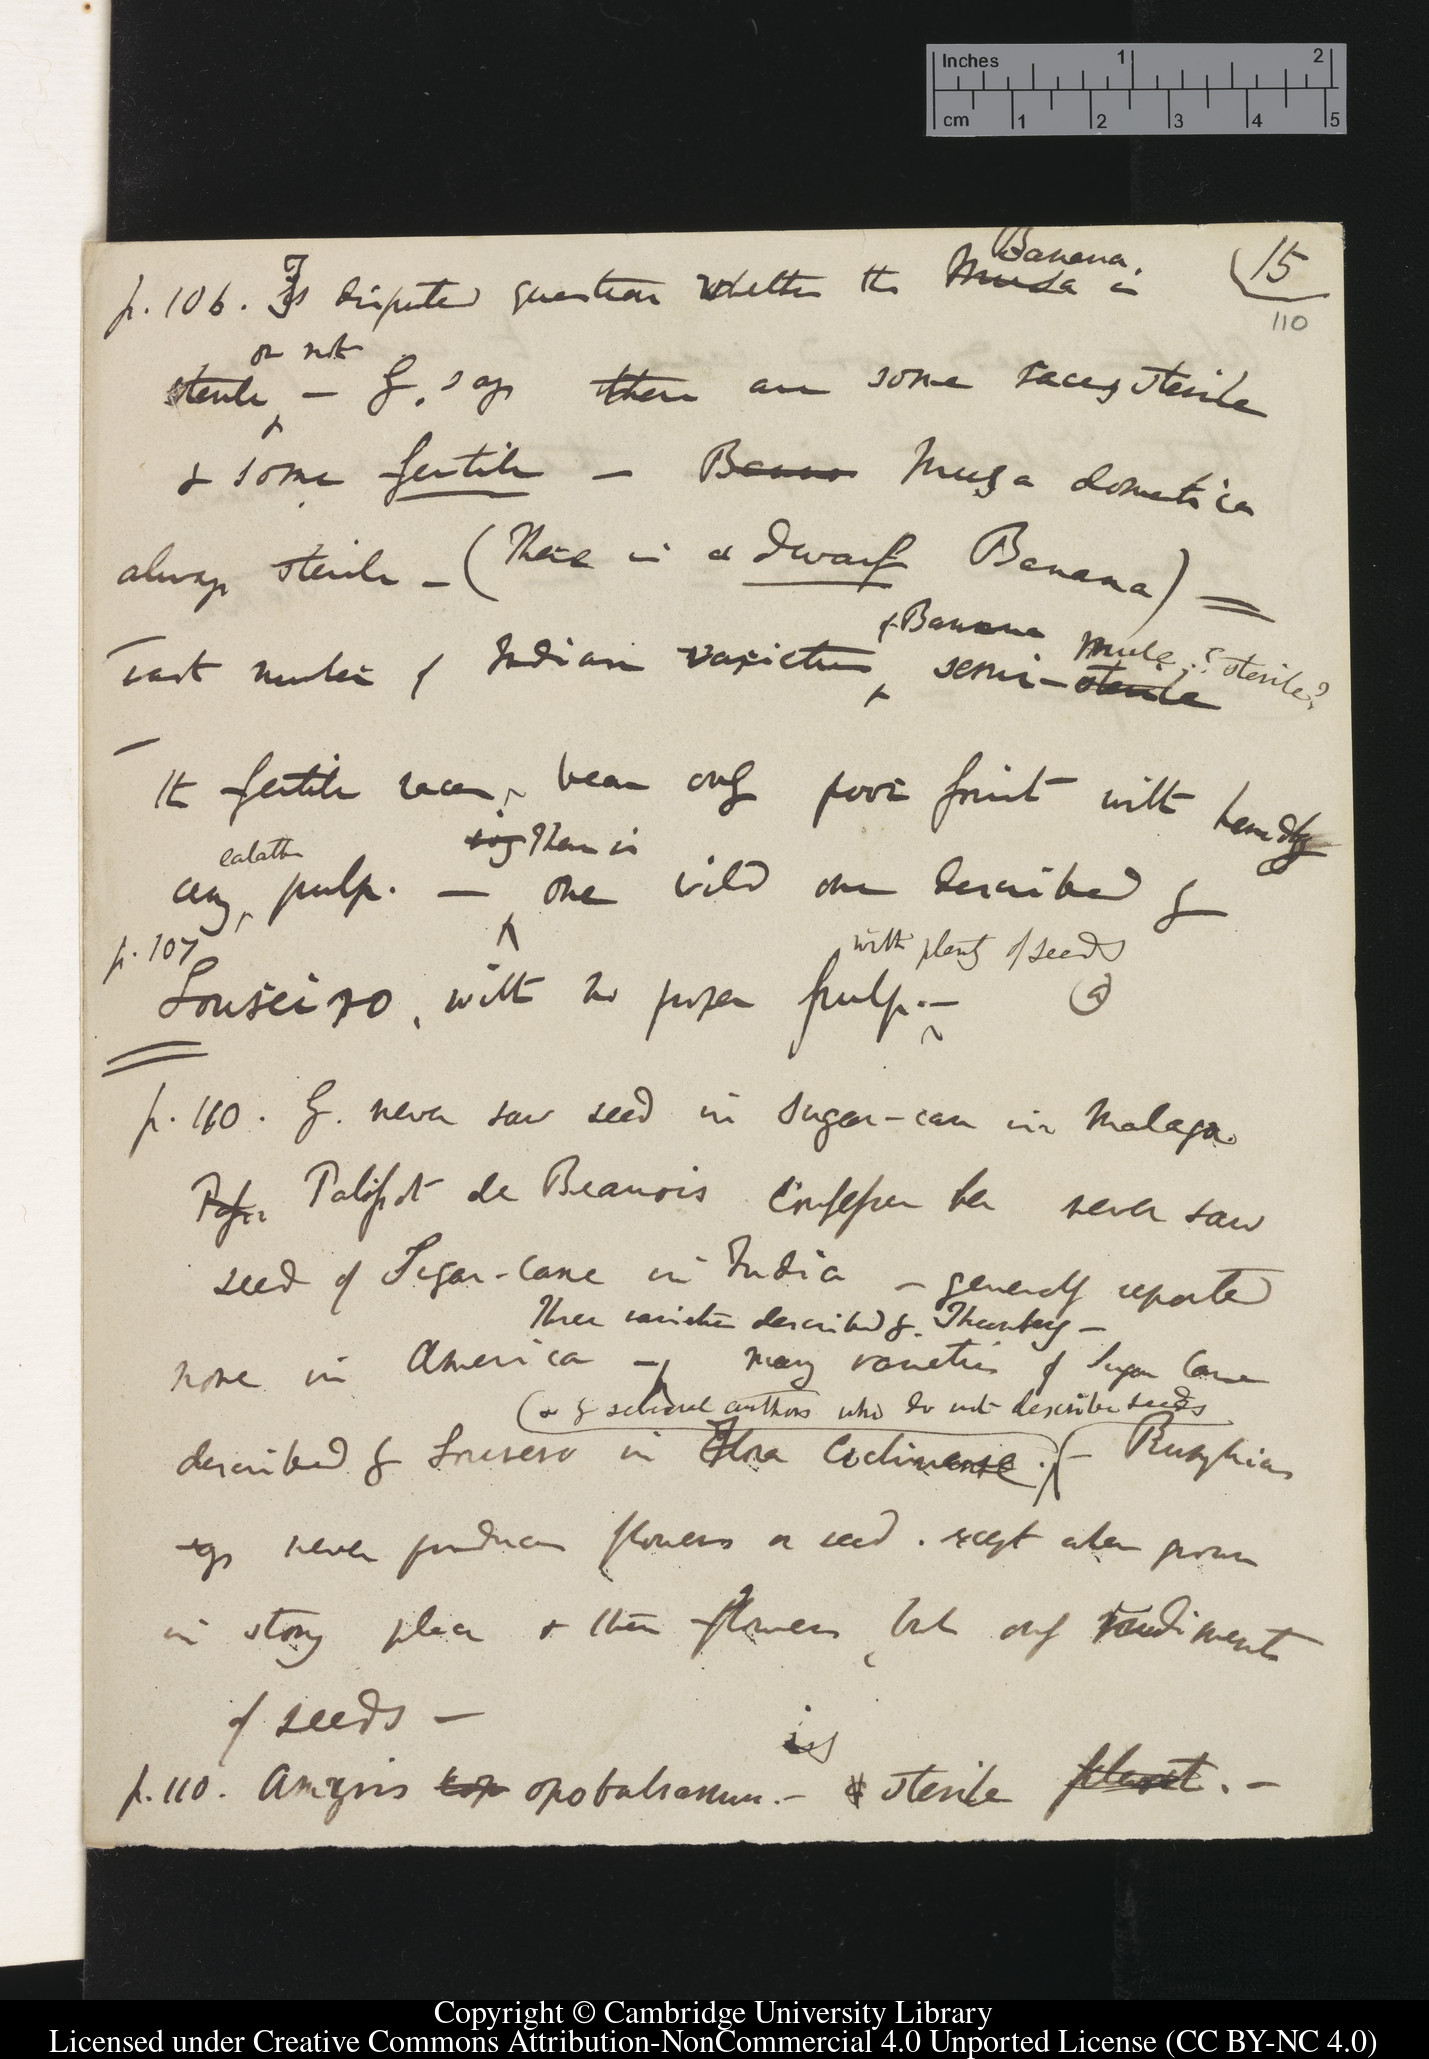 Inches 1 2
cm 1 2 3 4 5
15
110
Banana.
p. 106. Is disputed question whether the Musa is
or not
sterile — G. says there are some races sterile
& some fertile — Musa domestica
always sterile — (There is a dwarf Banana) =
& Banana mule ? sterile?
vast number of Indian varieties, semi-sterile
The fertile races, bear only poor fruit with hardly
eatable There is
any pulp. — one wild one described by
p. 107 with plenty of seeds
Loureiro, with no proper pulp. — (a)
p. 110. G. never saw seed in sugar-cane in Malaga.
Palissot de Beauvois confesses he never saw
seed of Sugar-cane in India — generally reported
Three varieties described by Thunberg —
none in America — many varieties of Sugar Cane
(& by several authors who do not describe seeds
described by Loureiro in Flora Cochinense.) — Rumphius
says never produces flowers or seed. except when grown
in stony place & then flowers, but only rudiments
of seeds —
is
p. 110. Amyris opobalsamum. — sterile plant. —
Copyright © Cambridge University Library
Licensed under Creative Commons Attribution-NonCommercial 4.0 Unported License (CC BY-NC 4.0)